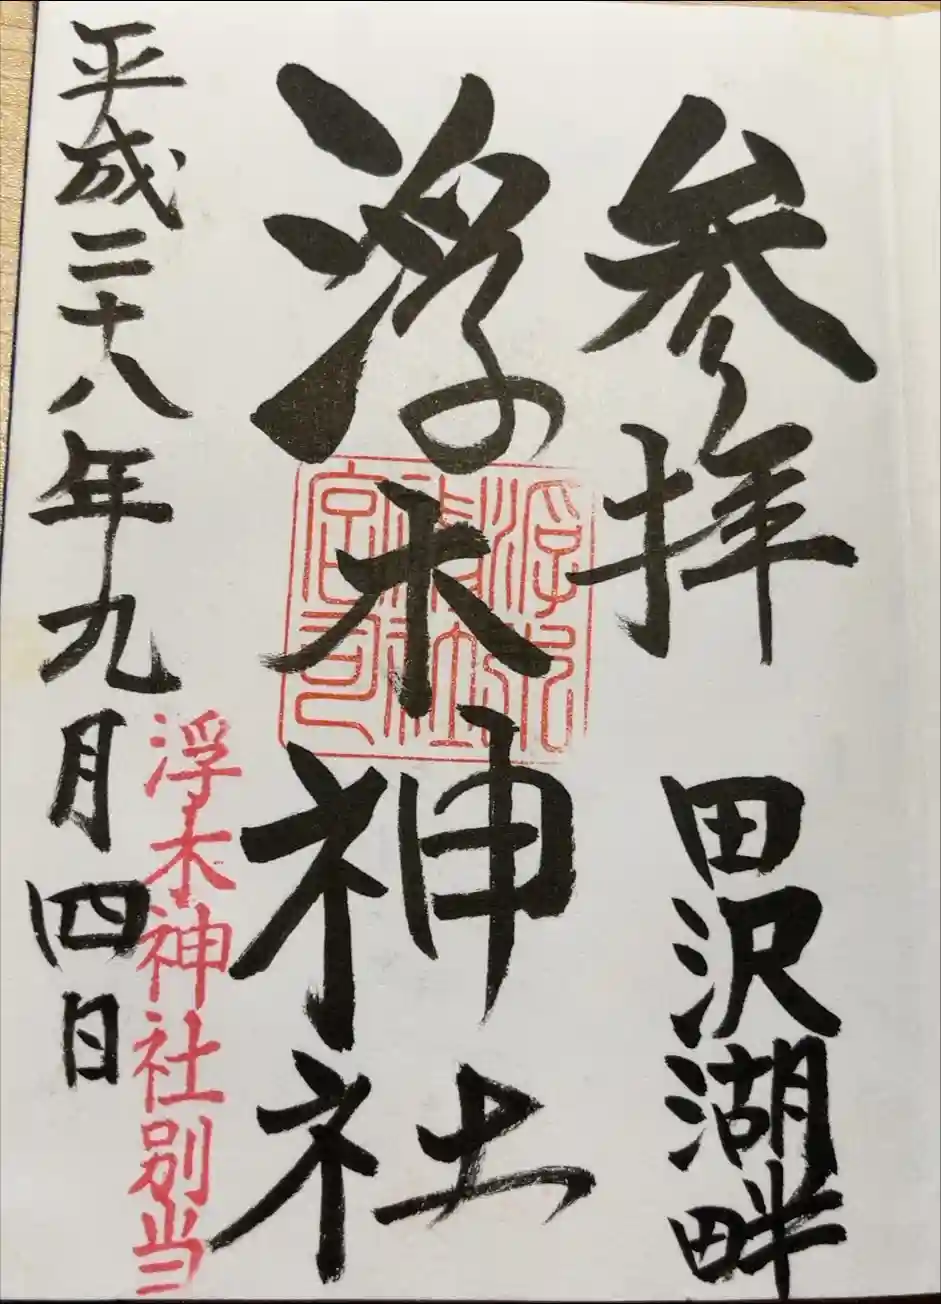 参拝 田沢湖畔
浮木神社
浮木
神社
宮司
浮木神社別当
平成二十八年九月四日